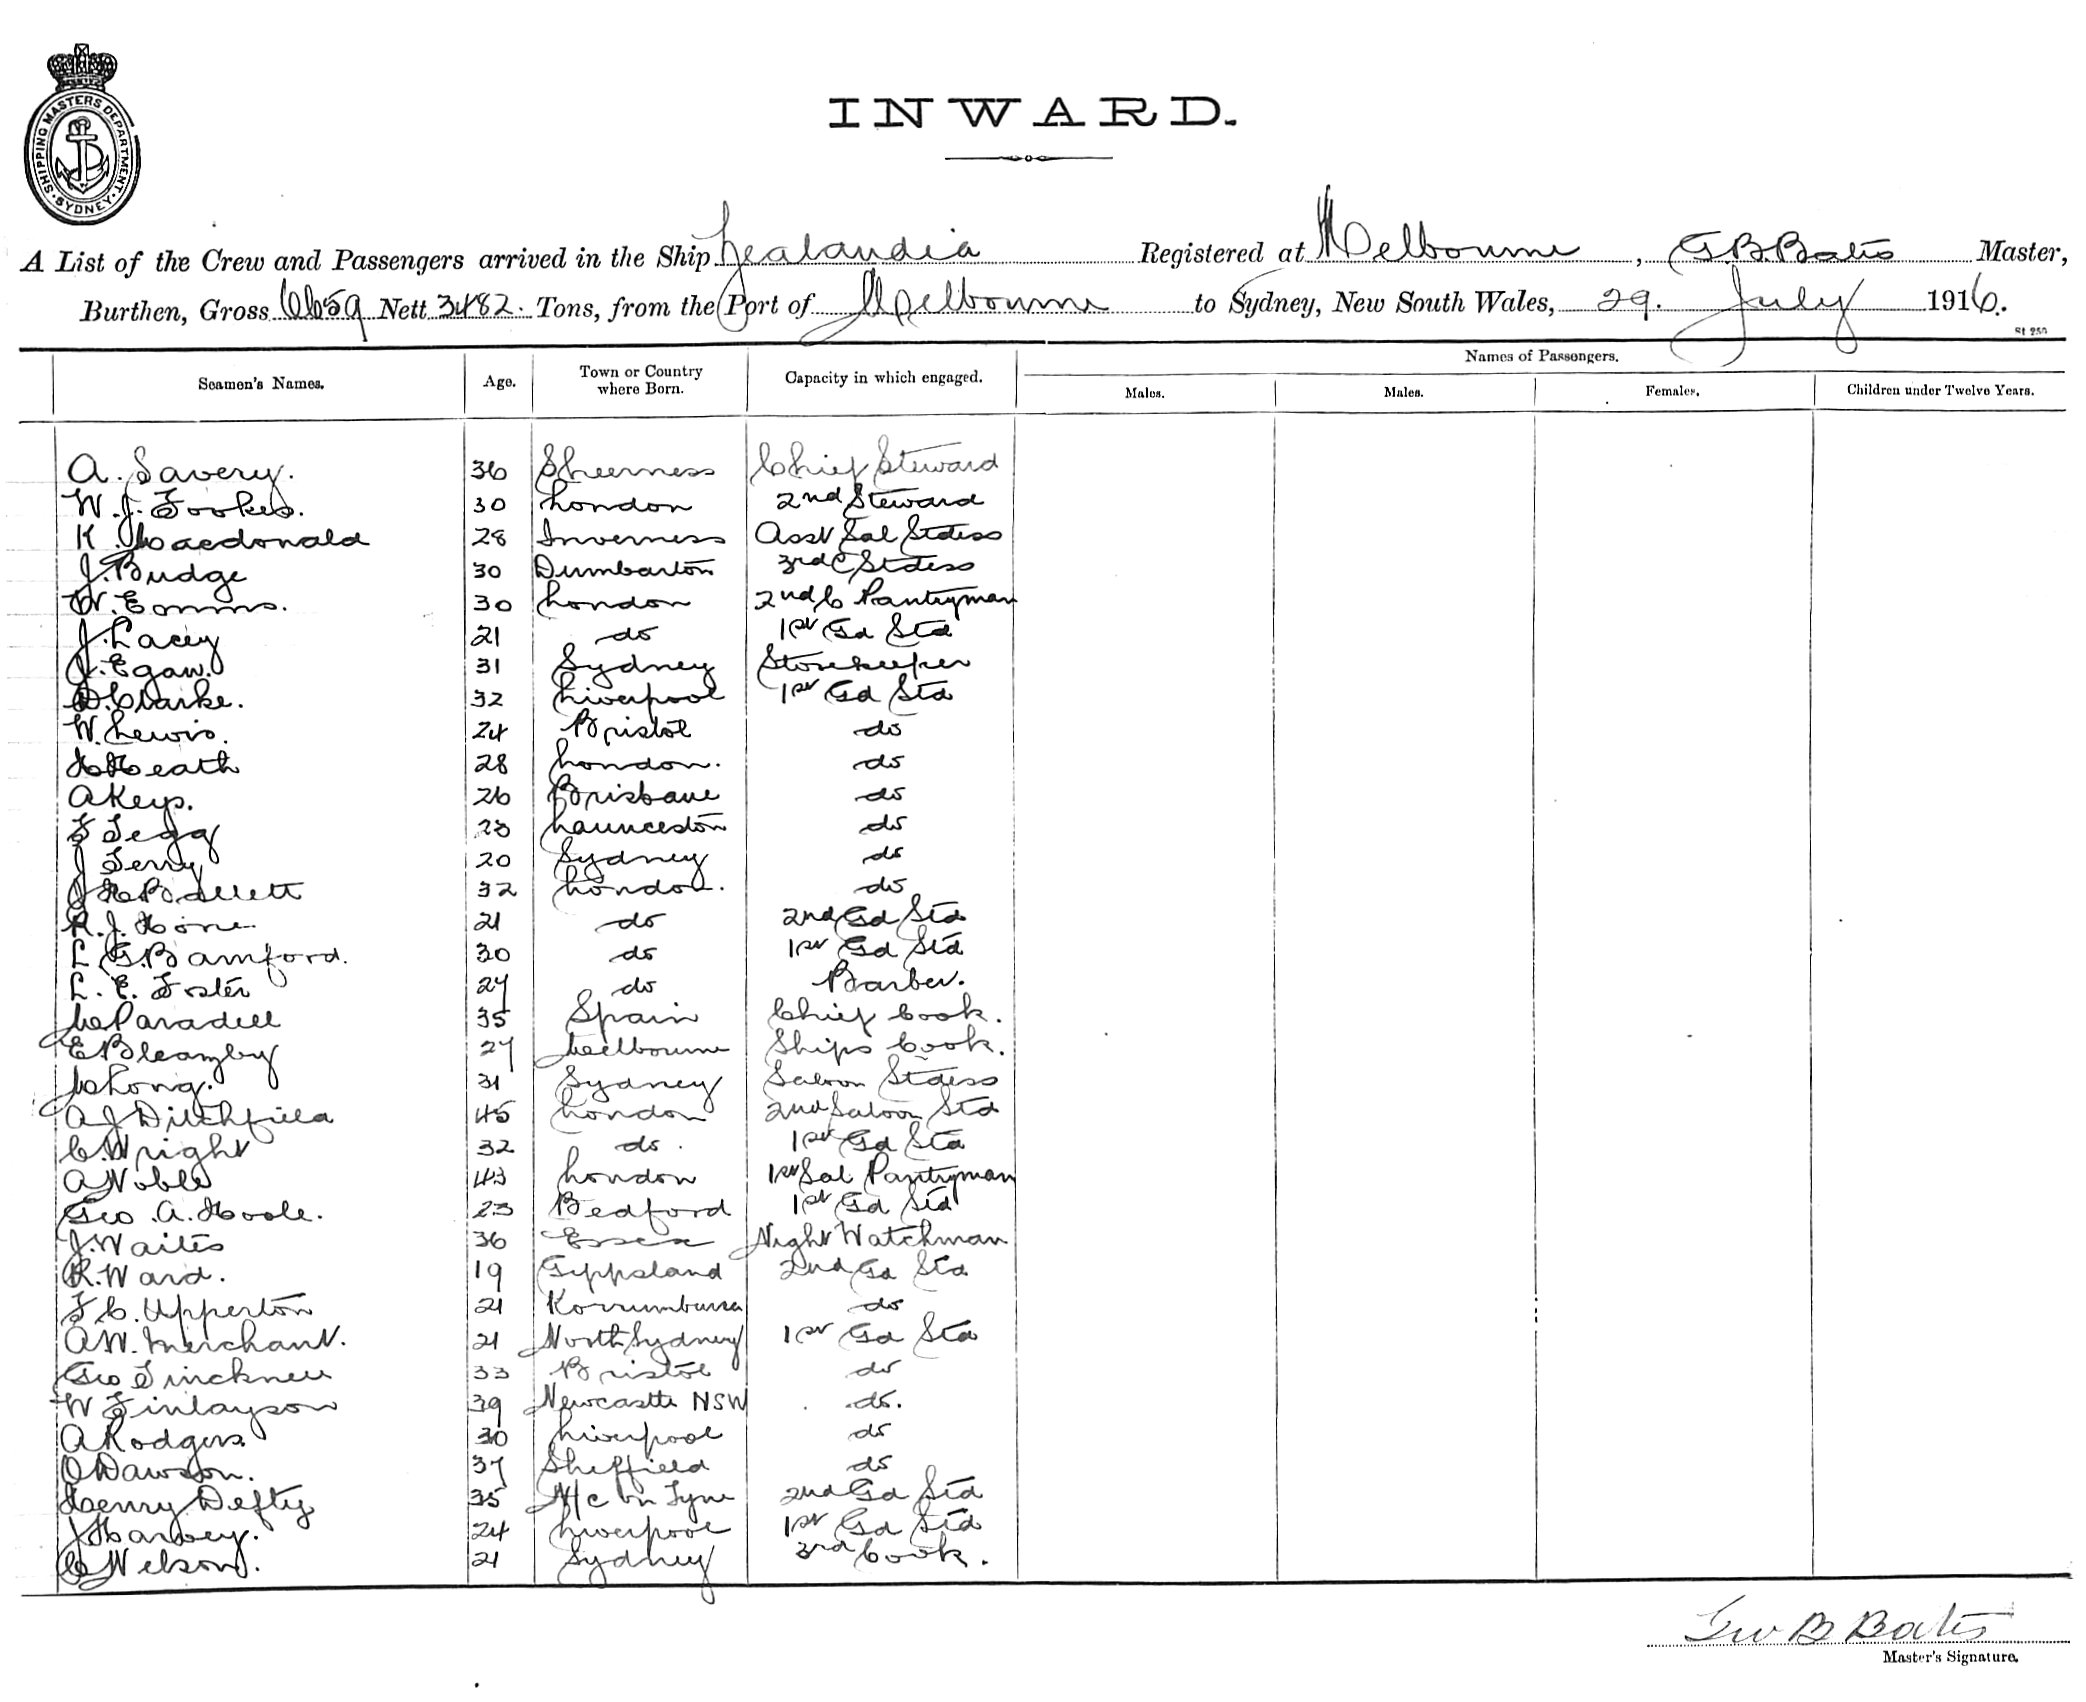 SHIPPING MASTERS DEPARTMENT. SYDNEY.
INWARD.
A List of the Crew and Passengers arrived in the Ship Zealandia Registered at Melbourne, G.B. Bates Master,
Burthen, Gross 6659 Nett 3482. Tons, from the Port of Melbourne to Sydney, New South Wales, 29. July 1916.
Names of Passengers.
Seamen's Names. Age. Town or Country where Born. Capacity in which engaged. Males. Males. Females. Children under Twelve Years.
A. Savery. 36 Sheerness Chief Steward
W. J. Fookes. 30 London 2nd Steward
K. Macdonald 28 Inverness Asst Sal Stdess
J. Budge 30 Dumbarton 3rd C Stdess
W. Emms. 30 London 2nd C Pantryman
J. Lacey 21 do 1st Gd Std
J. Egan. 31 Sydney Storekeeper
D. Clarke. 32 Liverpool 1st Gd Std
W. Lewis. 24 Bristol do
H Heath 28 London. do
A Keys. 26 Brisbane do
F Tegg Launceston do
J Terry 20 Sydney do
J H Ballett 32 London. do
R. J. Hone 21 do 2nd Gd Std
L. G. Bamford. 30 do 1st Gd Std
L. E. Foster 27 do Barber.
M Paradell 35 Spain Chief Cook.
E Bleazby 27 Melbourne Ships Cook.
M Long. 31 Sydney Saloon Stdess
A J Ditchfield 45 London 2nd Saloon Std
C. Wright 32 do. 1st Gd Std
A Noble 43 London 1st Sal Pantryman
Geo. A. Hoole. 23 Bedford 1st Gd Std
J. Waites 36 Essex Night Watchman
R. Ward. 19 Gippsland 2nd Gd Std
F C. Upperton 21 Korrumburra do
A W. Merchant. 21 North Sydney 1st Gd Std
Geo Tincknell 33 Bristol do
W Finlayson 39 Newcastle NSW do.
A Rodgers 30 Liverpool do
O Dawson. 37 Sheffield do
Henry Defty 35 N/c on Tyne 2nd Gd Std
J Harvey. 24 Liverpool 1st Gd Std
C Nelson. 21 Sydney 3rd Cook.
Geo B Bates
Master's Signature.